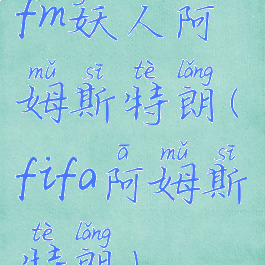 fm妖人阿
mǔ sī tè lǎng
姆斯特朗(
ā mǔ sī
fifa阿姆斯
tè lǎng
特朗)